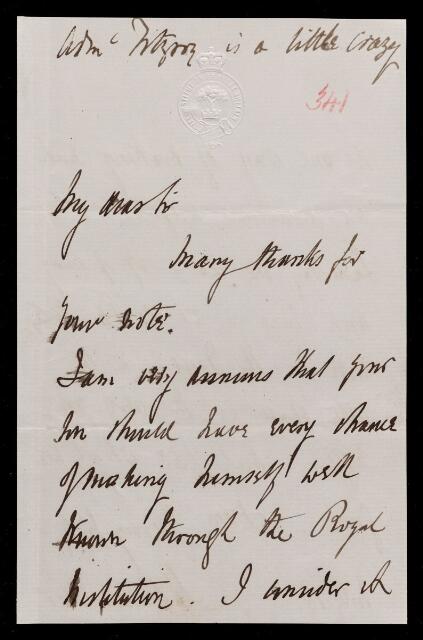 Adm^c Fitzroy is a little crazy
341
My dear Sir
Many thanks for
your note.
I am very anxious that your
son should have every chance
of making himself well
known through the Royal
Institution. I consider it